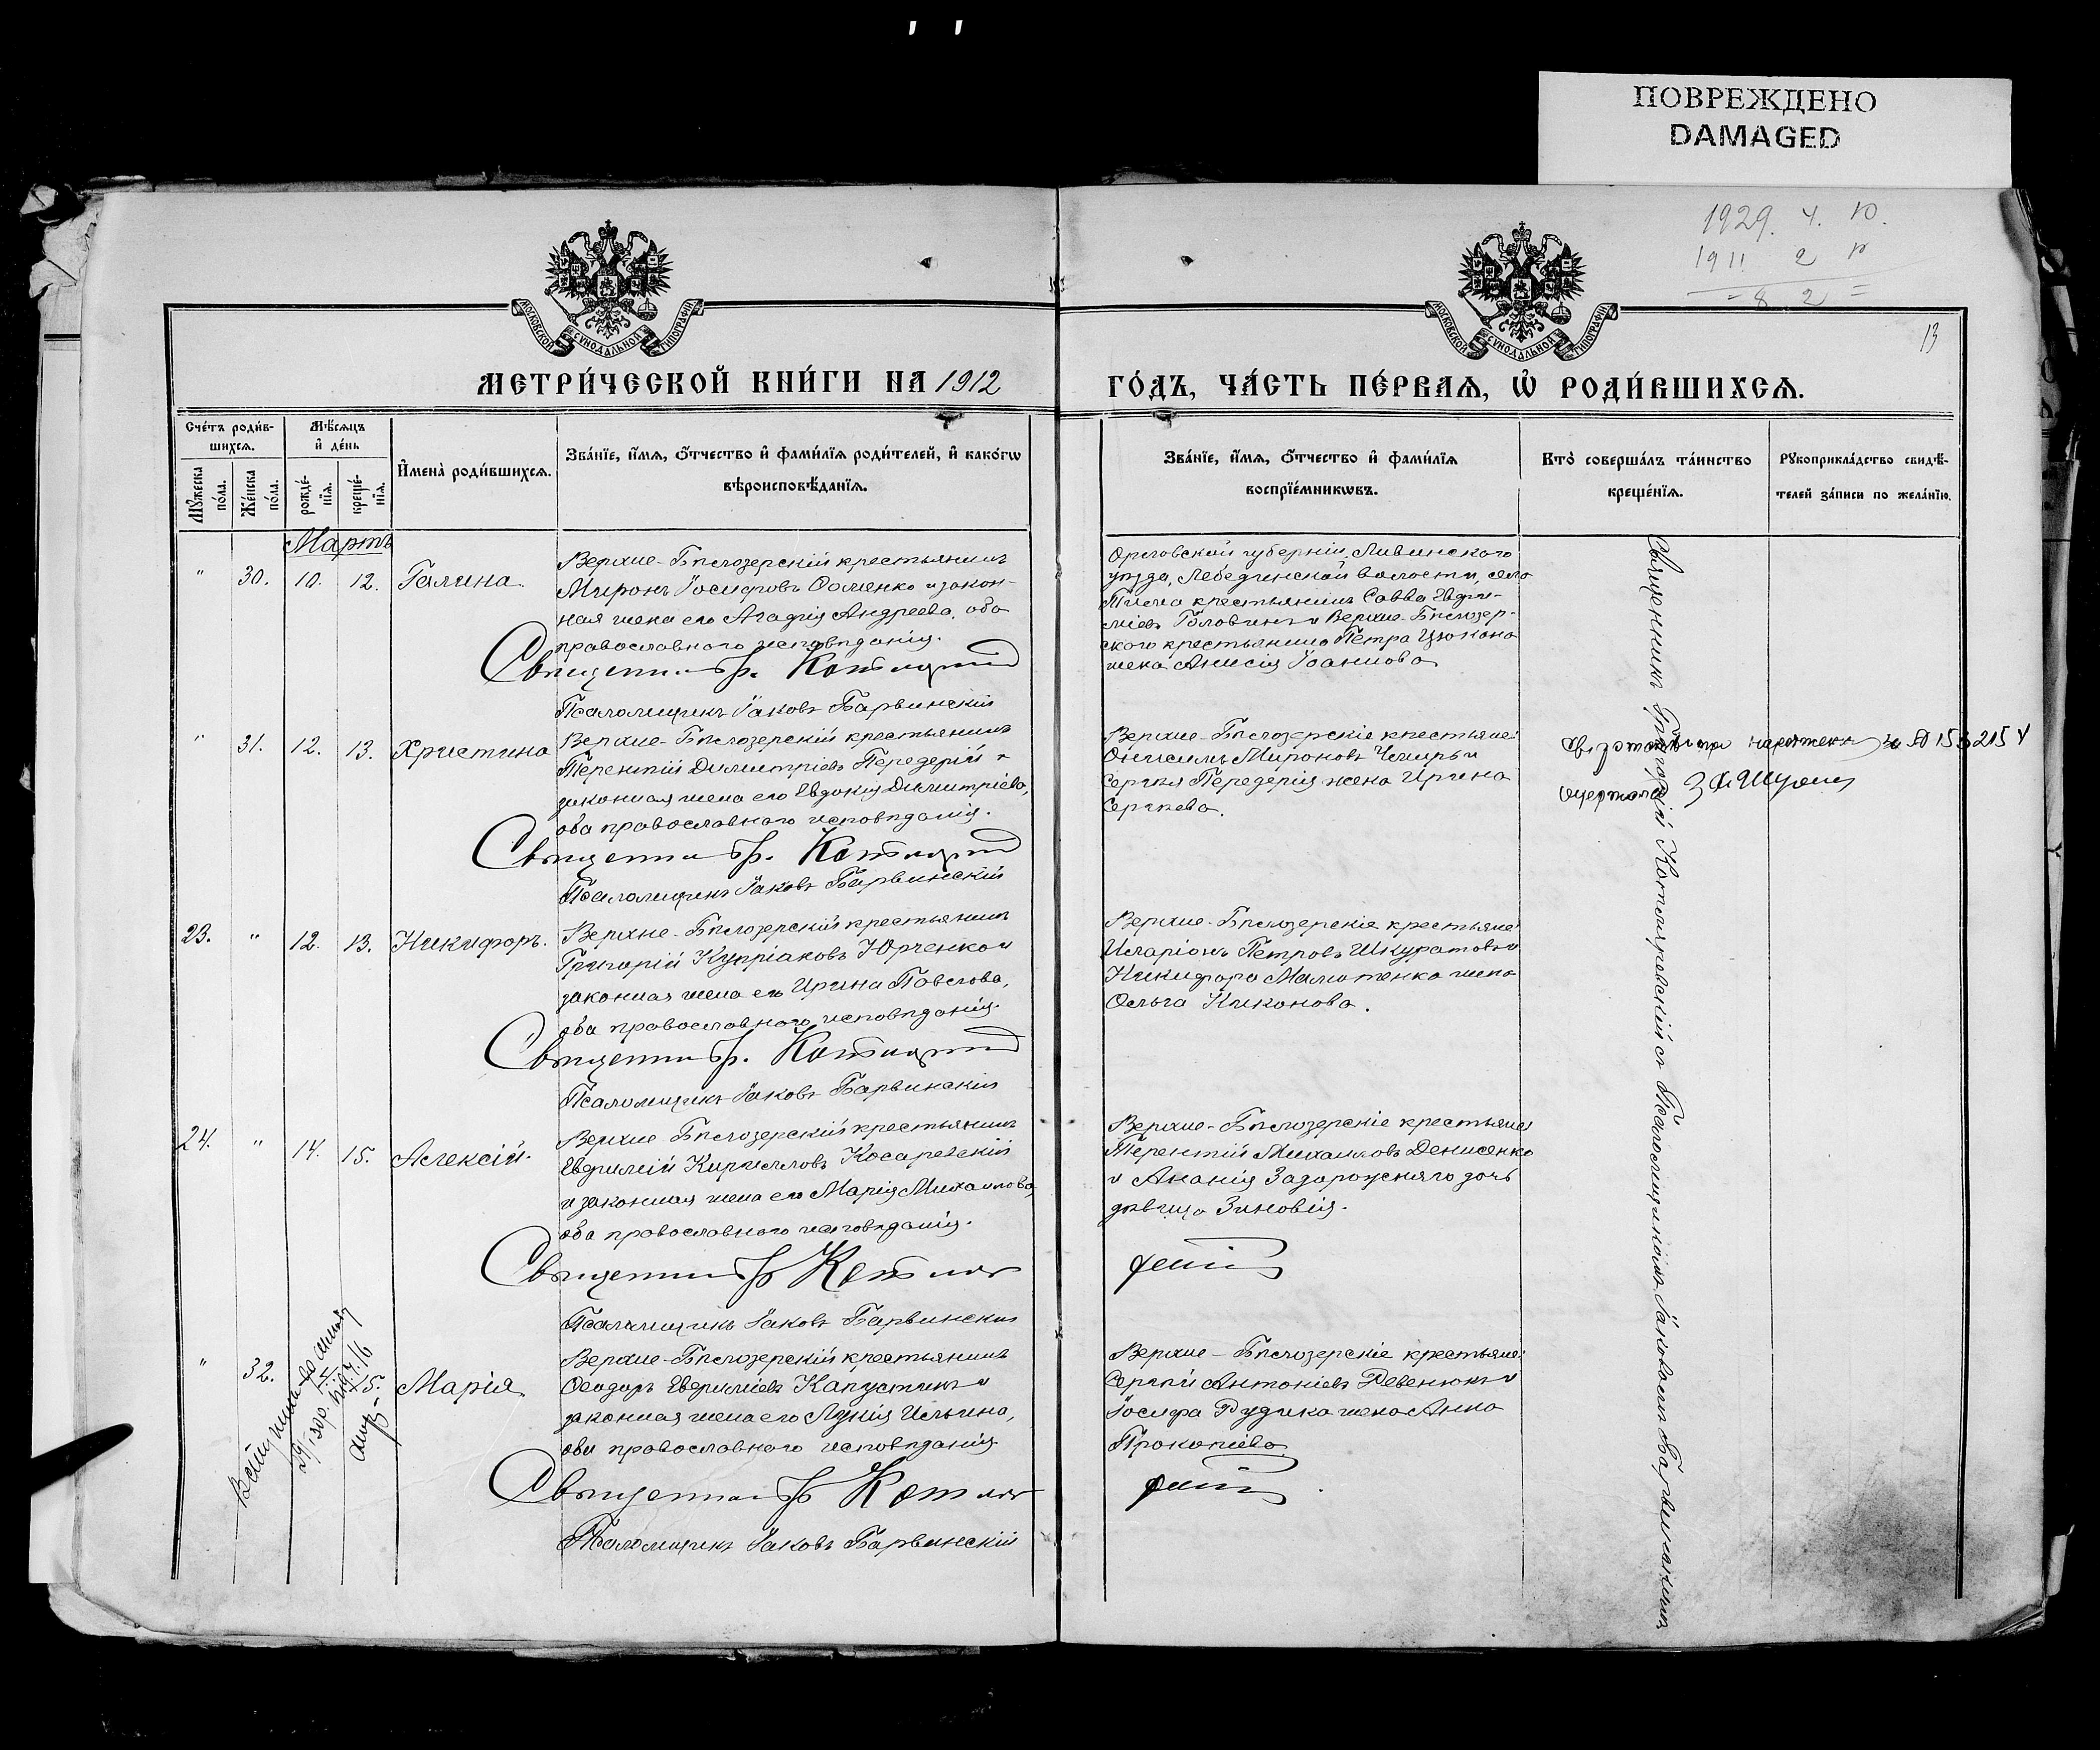 ПОВРЕЖДЕНО
DAMAGED
1929. 4. 10.
1911 2
8 2 =
13
МОСКОВСКОЙ СѴНОДАЛЬНОЙ ТИПОГРАФІИ
МОСКОВСКОЙ СѴНОДАЛЬНОЙ ТИПОГРАФІИ
МЕТРИ́ЧЕСКОЙ КНИ́ГИ НА 1912
ГО́ДЪ, ЧА́СТЬ ПЕ́РВАѦ, Ѡ РОДИ́ВШИХСѦ.
Сче́тъ роди́в-
шихсѧ.
Мꙋ́жеска по́ла.
Же́нска по́ла.
Мѣ́сѧцъ
и҆ де́нь
рожде́-
нїѧ.
креще́-
нїѧ.
И҆мена̀ роди́вшихсѧ.
Зва́нїе, и҆́мѧ, ѻ҆́тчество и҆ фами́лїѧ роди́телей, и҆ како́гѡ
вѣроисповѣ́данїѧ.
Зва́нїе, и҆́мѧ, ѻ҆́тчество и҆ фами́лїѧ
воспрїе́мникѡвъ.
Кто̀ соверша́лъ та́инство
креще́нїѧ.
Рꙋкоприкла́дство свидѣ́-
телей за́писи по жела́нїю.
Мартъ
" 30. 10. 12. Галина
Верхне-Бѣлозерскій крестьянинъ
Миронъ Іосифовъ Ѳоменко и закон-
ная жена его Агафія Андреева, оба
православнаго исповѣданія.
Священникъ Гр. Котляр
Псаломщикъ Іаковъ Барвинскій
Орловской губерніи, Ливинскаго
уѣзда, Лебедкинской волости, села
крестьянинъ Савва Евфи-
міевъ Головинъ и Верхне-Бѣлозер-
скаго крестьянина Петра
жена Анисія Іоаннова
" 31. 12. 13. Христина
Верхне-Бѣлозерскій крестьянинъ
Терентій Димитріевъ Передерій и
законная жена его Евдокія Димитріева,
оба православнаго исповѣданія.
Священникъ Гр. Котляр
Псаломщикъ Іаковъ Барвинскій
Верхне-Бѣлозерскіе крестьяне:
Онисимъ Мироновъ Чмиръ и
Сергѣя Передерія жена Ирина
Сергѣева.
за № 153215
23. " 12. 13. Никифоръ.
Верхне-Бѣлозерскій крестьянинъ
Григорій Купріановъ Юрченко и
законная жена его Ирина Павлова,
оба православнаго исповѣданія.
Священникъ Гр. Котляр
Псаломщикъ Іаковъ Барвинскій
Верхне-Бѣлозерскіе крестьяне:
Иларіонъ Петровъ Шкуратовъ и
Никифора Маматенка жена
Ольга Никонова.
24. " 14. 15. Алексій.
Верхне-Бѣлозерскій крестьянинъ
Евфимій Кирилловъ Косаревскій
и законная жена его Марія Михаилова,
оба православнаго исповѣданія.
Священникъ Гр. Котляр
Псаломщикъ Іаковъ Барвинскій
Верхне-Бѣлозерскіе крестьяне:
Терентій Михаиловъ Денисенко
и Ананія Задорожняго дочь
дѣвица Зиновія.
" 32. 15. Марія
Верхне-Бѣлозерскій крестьянинъ
Ѳеодоръ Евфиміевъ Капустинъ и
законная жена его Лукія Ильина,
оба православнаго исповѣданія.
Священникъ Гр. Котляр
Псаломщикъ Іаковъ Барвинскій
Верхне-Бѣлозерскіе крестьяне:
Сергѣй Антоніевъ Ревенюкъ и
Іосифа Рудика жена Анна
Прокопіева
Священникъ Григорій Котляревскій съ Псаломщикомъ Іаковомъ Барвинскимъ